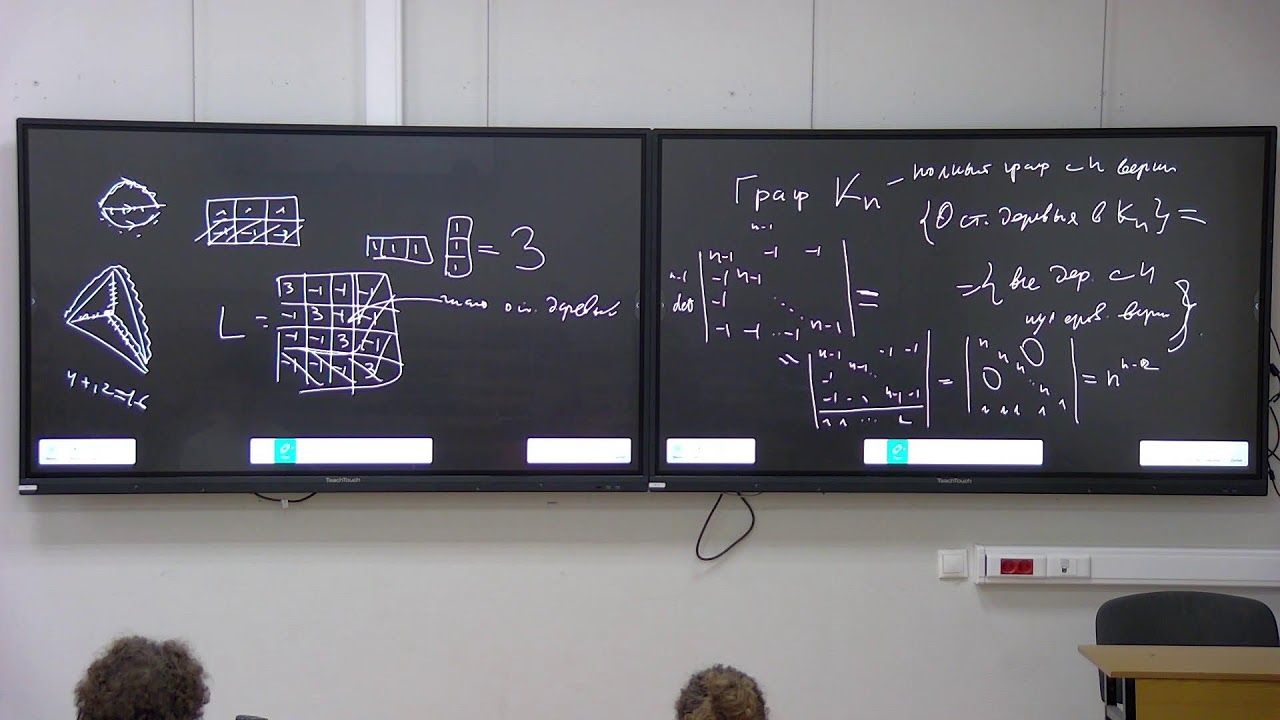 1 1 1
-1 -1 -1
1 1 1
1
1
1
= 3
L =
3 -1 -1 -1
-1 3 -1 -1
-1 -1 3 -1
-1 -1 -1 3
число ост. деревьев
4+12=16
TeachTouch
Граф Kn – полный граф с n верш
{Ост. деревья в Kn} =
= { все дер. с n
нумеров. верш }
n-1
n-1
det
n-1 -1 -1
-1 n-1
-1
-1 -1 ... -1 n-1
=
n-1 -1 -1
-1 n-1
-1 -1 n-1 -1
1 1 ... 1
=
n
n 0
0 n
n
1 1 1 1 1
= n^n-2
TeachTouch